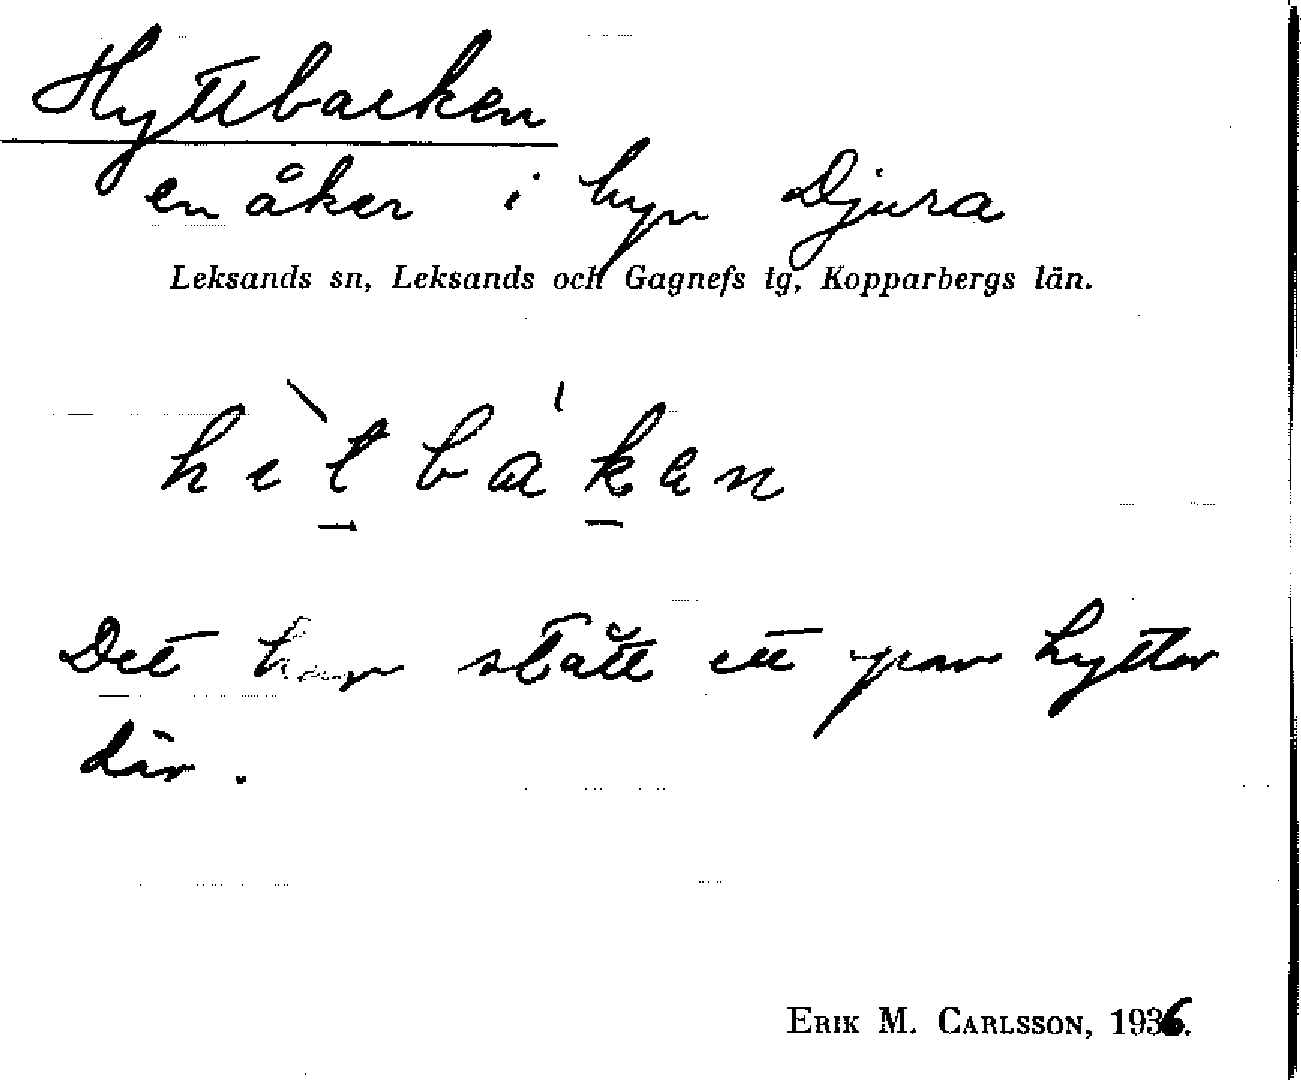 Hyttbacken
en åker i byn Djura
Leksands sn, Leksands och Gagnefs tg, Kopparbergs län.
hètbákən
Det har stått ett par hyttor
där.
ERIK M. CARLSSON, 1936.